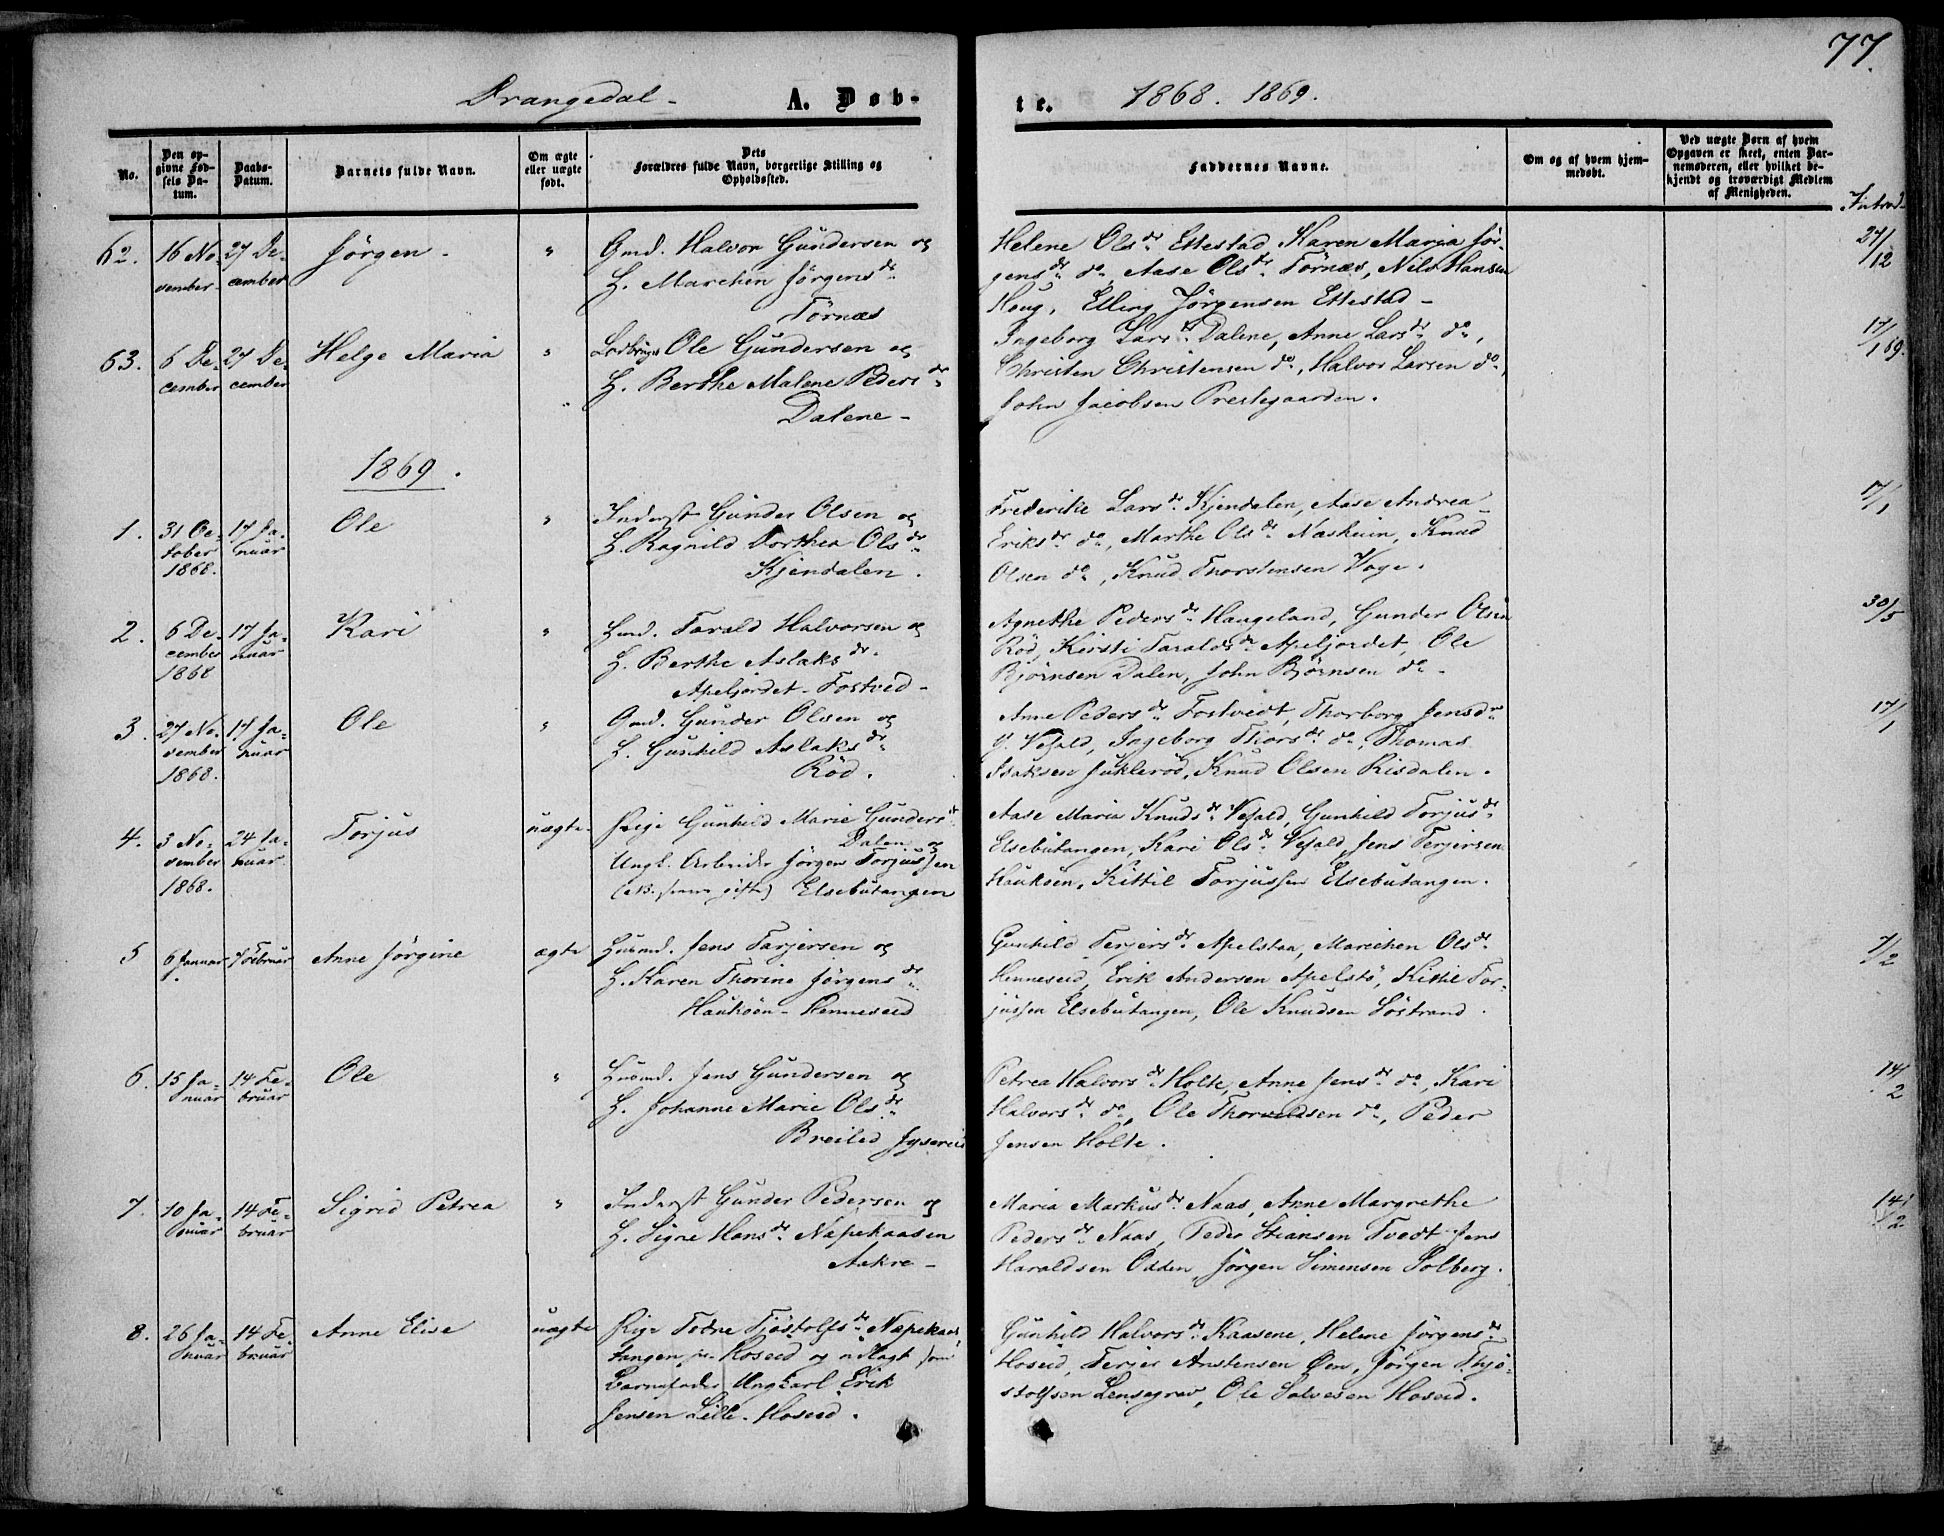 77
Drangedal -
A. Døb-
te.
1868. 1869.
No.
Den op-
givne Fød-
sels Da-
tum.
Daabs-
Datum.
Barnets fulde Navn.
Om ægte
eller uægte
født.
Dets
Forældres fulde Navn, borgerlige Stilling og
Opholdssted.
Faddernes Navne.
Om og af hvem hjem-
medøbt.
Ved uægte Børn af hvem
Opgaven er skeet, enten Bar-
nemoderen, eller hvilket be-
kjendt og troværdigt Medlem
af Menigheden.
62.
16 No-
vember
27 De-
cember
Jörgen -
"
Gmd. Halvor Gundersen og
H. Marchen Jörgensdr
Törnæs
Helene Olsdr Ettestad, Karen Maria Jör-
gensdr do, Aase Olsdr Törnæs, Nils Hansen
Houg, Elling Jörgensen Ettestad -
27/12
63.
6 De-
cember
27 De-
cember
Helge Maria
"
Ole Gundersen og
H. Berthe Malene Pedersdr
Dalene -
Ingeborg Larsdr Dalene, Anne Larsdr do,
Christen Christensen do, Halvor Larsen do,
John Jacobsen Prestegaarden.
17/1 69.
1869.
1.
31 Oc-
tober
1868.
17 Ja-
nuar
Ole
"
Inderst Gunder Olsen og
H. Ragnild Dorthea Olsdr
Kjendalen.
Frederike Larsdr Kjendalen, Aase Andrea
Eriksdr do, Marthe Olsdr Naskuin, Knud
Olsen do, Knud Thorstensen Voge.
17/1
2.
6 De-
cember
1868
17 Ja-
nuar
Kari
"
Hmd. Tarald Halvorsen og
H. Berthe Aslaksdr
Apeljordet - Tostved -
Agnethe Pedersdr Haugeland, Gunder Olsen
Röd, Kirsti Taraldsdr Apeljordet, Ole
Björnsen Dalen, John Björnsen do -
30/5
3.
27 No-
vember
1868.
17 Ja-
nuar
Ole
"
Gmd. Gunder Olsen og
H. Gunhild Aslaksdr
Röd.
Anne Pedersdr Tostvedt, Thorborg Jensdr
Y. Vefald, Ingeborg Thorsdr do, Thomas
Isaksen Jukleröd, Knud Olsen Risdalen.
17/1
4.
3 No-
vember
1868.
24 Ja-
nuar
Torjus
uægte
Pige Gunhild Marie Gundersdr
Dalen og
Ungk. Arbeider Jörgen Torjussen
Elsebutangen
Aase Maria Knudsdr Vefald, Gunhild Torjusdr
Elsebutangen, Kari Olsdr Vefald, Jens Terjersen
Hauköen, Kittil Torjussen Elsebutangen.
5
6 Januar
7 Februar
Anne Jörgine
ægte
Husmd. Jens Tarjersen og
H. Karen Thorine Jörgensdr
Hauköen - Henneseid
Gunhild Terjersdr Apelstaa, Marichen Olsdr
Henneseid, Erik Andersen Apelstö, Kittil Tor-
jussen Elsebutangen, Ole Knudsen Söstrand.
7/2
6.
15 Ja-
nuar
14 Fe-
bruar
Ole
"
Husmd. Jens Gundersen og
H. Johanne Marie Olsdr
Breilid
Petrea Halvorsdr Holte, Anne Jensdr do, Kari
Halvorsdr do, Ole Thorvaldsen do, Peder
Jensen Holte.
14/2
7.
10 Ja-
nuar
14 Fe-
bruar
Sigrid Petrea
"
Inderst Gunder Pedersen og
H. Signe Hansdr Næpekaasen
Aakre -
Maria Markusdr Naas, Anne Margrethe
Pedersdr Naas, Peder Stiansen Tvedt, Jens
Haraldsen Odden, Jörgen Simensen Solberg.
14/2
8.
26 Ja-
nuar
14 Fe-
bruar
Anne Elise
uægte
Pige Todne Tjöstolfsdr Næpekaas
tangen Hoseid og udlagt som
Barnefader Ungkarl Erik
Jensen Lille-Hoseid.
Gunhild Halvorsdr Kaasene, Helene Jörgensdr
Hoseid, Terjer Anstensen Øen, Jörgen Thjö-
stolfsen Lensegrav, Ole Salvesen Hoseid.